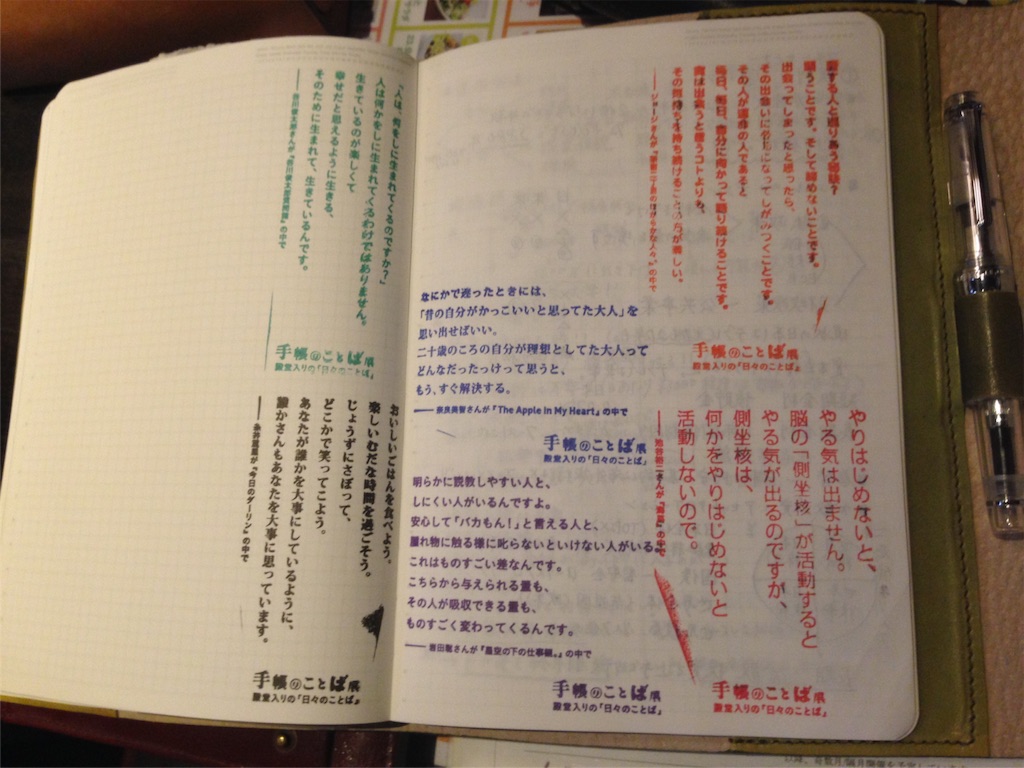 「人は、何をしに生まれてくるのですか?」
人は何かをしに生まれてくるわけではありません。
生きているのが楽しくて
幸せだと思えるように生きる、
そのために生まれて、生きているんです。
手帳のことば展
殿堂入りの「日々のことば」
おいしいごはんを食べよう。
楽しいむだな時間を過ごそう。
じょうずにさぼって、
どこかで笑ってこよう。
あなたが誰かを大事にしているように、
誰かさんもあなたを大事に思っています。
——永井真里が『今日のダーリン』の中で
手帳のことば展
殿堂入りの「日々のことば」
願うことです。そして諦めないことです。
出会ってしまったと思ったら、
その出会いに必死になってしがみつくことです。
その人が運命の人であると
毎日、毎日、自分に向かって語り続けることです。
実は出会うと言うコトよりも、
その気持ちを持ち続けることの方が難しい。
手帳のことば展
殿堂入りの「日々のことば」
なにかで迷ったときには、
「昔の自分がかっこいいと思ってた大人」を
思い出せばいい。
二十歳のころの自分が理想としてた大人って
どんなだったっけって思うと、
もう、すぐ解決する。
——奈良美智さんが『The Apple In My Heart』の中で
手帳のことば展
殿堂入りの「日々のことば」
やりはじめないと、
やる気は出ません。
脳の「側坐核」が活動すると
やる気が出るのですが、
側坐核は、
何かをやりはじめないと
活動しないので。
——池谷裕二さんが『海馬』の中で
手帳のことば展
殿堂入りの「日々のことば」
明らかに説教しやすい人と、
しにくい人がいるんですよ。
安心して「バカもん!」と言える人と、
腫れ物に触る様に叱らないといけない人がいる。
これはものすごい差なんです。
こちらから与えられる量も、
その人が吸収できる量も、
ものすごく変わってくるんです。
——岩田聡さんが『星空の下の仕事観。』の中で
手帳のことば展
殿堂入りの「日々のことば」